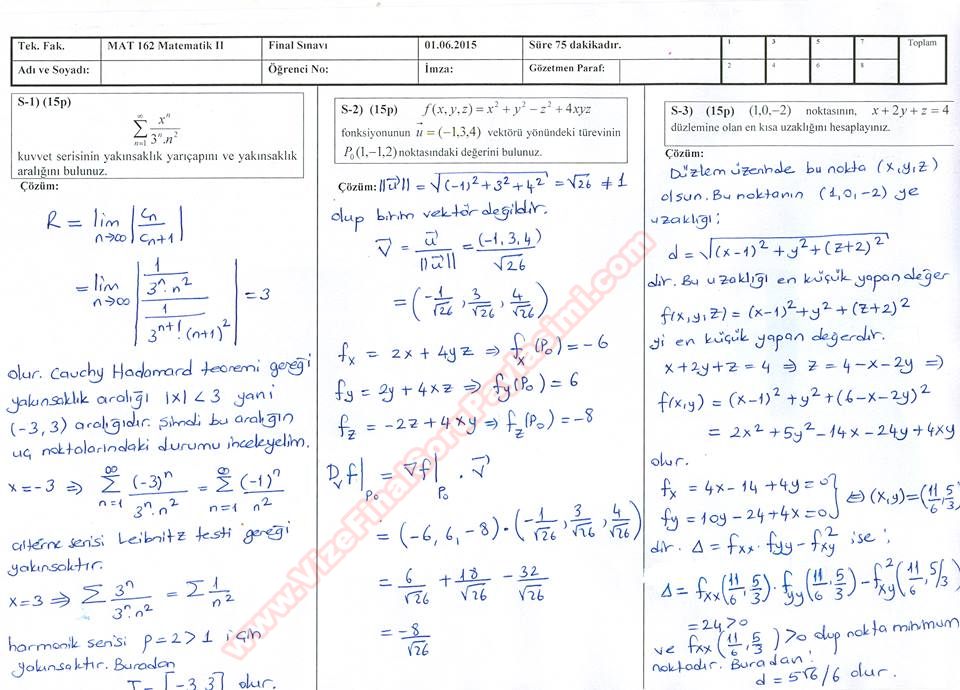 Tek. Fak. MAT 162 Matematik II Final Sınavı 01.06.2015 Süre 75 dakikadır. 1 3 5 7 Toplam
Adı ve Soyadı: Öğrenci No: İmza: Gözetmen Paraf: 2 4 6 8
S-1) (15p)
∞
∑ xⁿ / 3ⁿ.n²
n=1
kuvvet serisinin yakınsaklık yarıçapını ve yakınsaklık
aralığını bulunuz.
Çözüm:
R = lim n→∞ | cn / cn+1 |
= lim n→∞ | (1 / 3ⁿ.n²) / (1 / 3ⁿ⁺¹.(n+1)²) | = 3
olur. Cauchy Hadamard teoremi gereği
yakınsaklık aralığı |x| < 3 yani
(-3, 3) aralığıdır. Şimdi bu aralığın
uç noktalarındaki durumu inceleyelim.
x = -3 ⇒ ∞∑n=1 (-3)ⁿ / 3ⁿ.n² = ∞∑n=1 (-1)ⁿ / n²
alterne serisi Leibnitz testi gereği
yakınsaktır.
x = 3 ⇒ ∑ 3ⁿ / 3ⁿ.n² = ∑ 1 / n²
harmonik serisi p = 2 > 1 için
yakınsaktır. Buradan
I = [-3, 3] olur.
S-2) (15p) f(x,y,z) = x² + y² − z² + 4xyz
fonksiyonunun u⃗ = (−1,3,4) vektörü yönündeki türevinin
P₀(1,−1,2) noktasındaki değerini bulunuz.
Çözüm: ||u⃗|| = √((-1)² + 3² + 4²) = √26 ≠ 1
olup birim vektör değildir.
v⃗ = u⃗ / ||u⃗|| = (-1, 3, 4) / √26
= (-1/√26, 3/√26, 4/√26)
fx = 2x + 4yz ⇒ fx(P₀) = -6
fy = 2y + 4xz ⇒ fy(P₀) = 6
fz = -2z + 4xy ⇒ fz(P₀) = -8
Dv f|P₀ = ∇f|P₀ . v⃗
= (-6, 6, -8) . (-1/√26, 3/√26, 4/√26)
= 6/√26 + 18/√26 - 32/√26
= -8/√26
S-3) (15p) (1,0,−2) noktasının, x + 2y + z = 4
düzlemine olan en kısa uzaklığını hesaplayınız.
Çözüm:
Düzlem üzerinde bu nokta (x,y,z)
olsun. Bu noktanın (1,0,-2) ye
uzaklığı;
d = √((x-1)² + y² + (z+2)²)
dir. Bu uzaklığı en küçük yapan değer
f(x,y,z) = (x-1)² + y² + (z+2)²
yi en küçük yapan değerdir.
x + 2y + z = 4 ⇒ z = 4-x-2y ⇒
f(x,y) = (x-1)² + y² + (6-x-2y)²
= 2x² + 5y² - 14x - 24y + 4xy
olur.
fx = 4x - 14 + 4y = 0
fy = 10y - 24 + 4x = 0 } ⇔ (x,y) = (11/6, 5/3)
dir. Δ = fxx . fyy - fxy² ise ;
Δ = fxx(11/6, 5/3) . fyy(11/6, 5/3) - fxy²(11/6, 5/3)
= 24 > 0
ve fxx(11/6, 5/3) > 0 olup nokta minimum
noktadır. Buradan ;
d = 5√6/6 olur.
www.VizeFinalSoruPaylasimi.com